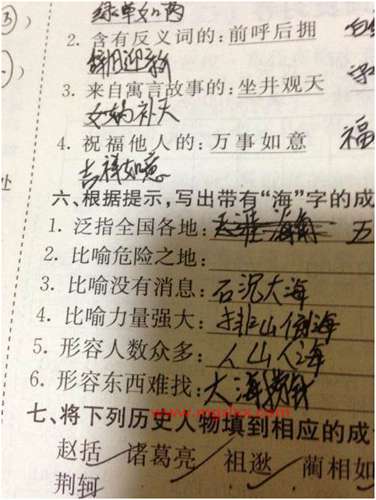 绿草如茵
2. 含有反义词的：前呼后拥
辞旧迎新
3. 来自寓言故事的：坐井观天
女娲补天
4. 祝福他人的：万事如意 福
吉祥如意
六、根据提示，写出带有“海”字的成
1. 泛指全国各地： 天涯海角 五
2. 比喻危险之地：
3. 比喻没有消息：石沉大海
4. 比喻力量强大：排山倒海
5. 形容人数众多：人山人海
6. 形容东西难找：大海捞针
七、将下列历史人物填到相应的成
赵括 诸葛亮 祖逖 蔺相如
荆轲